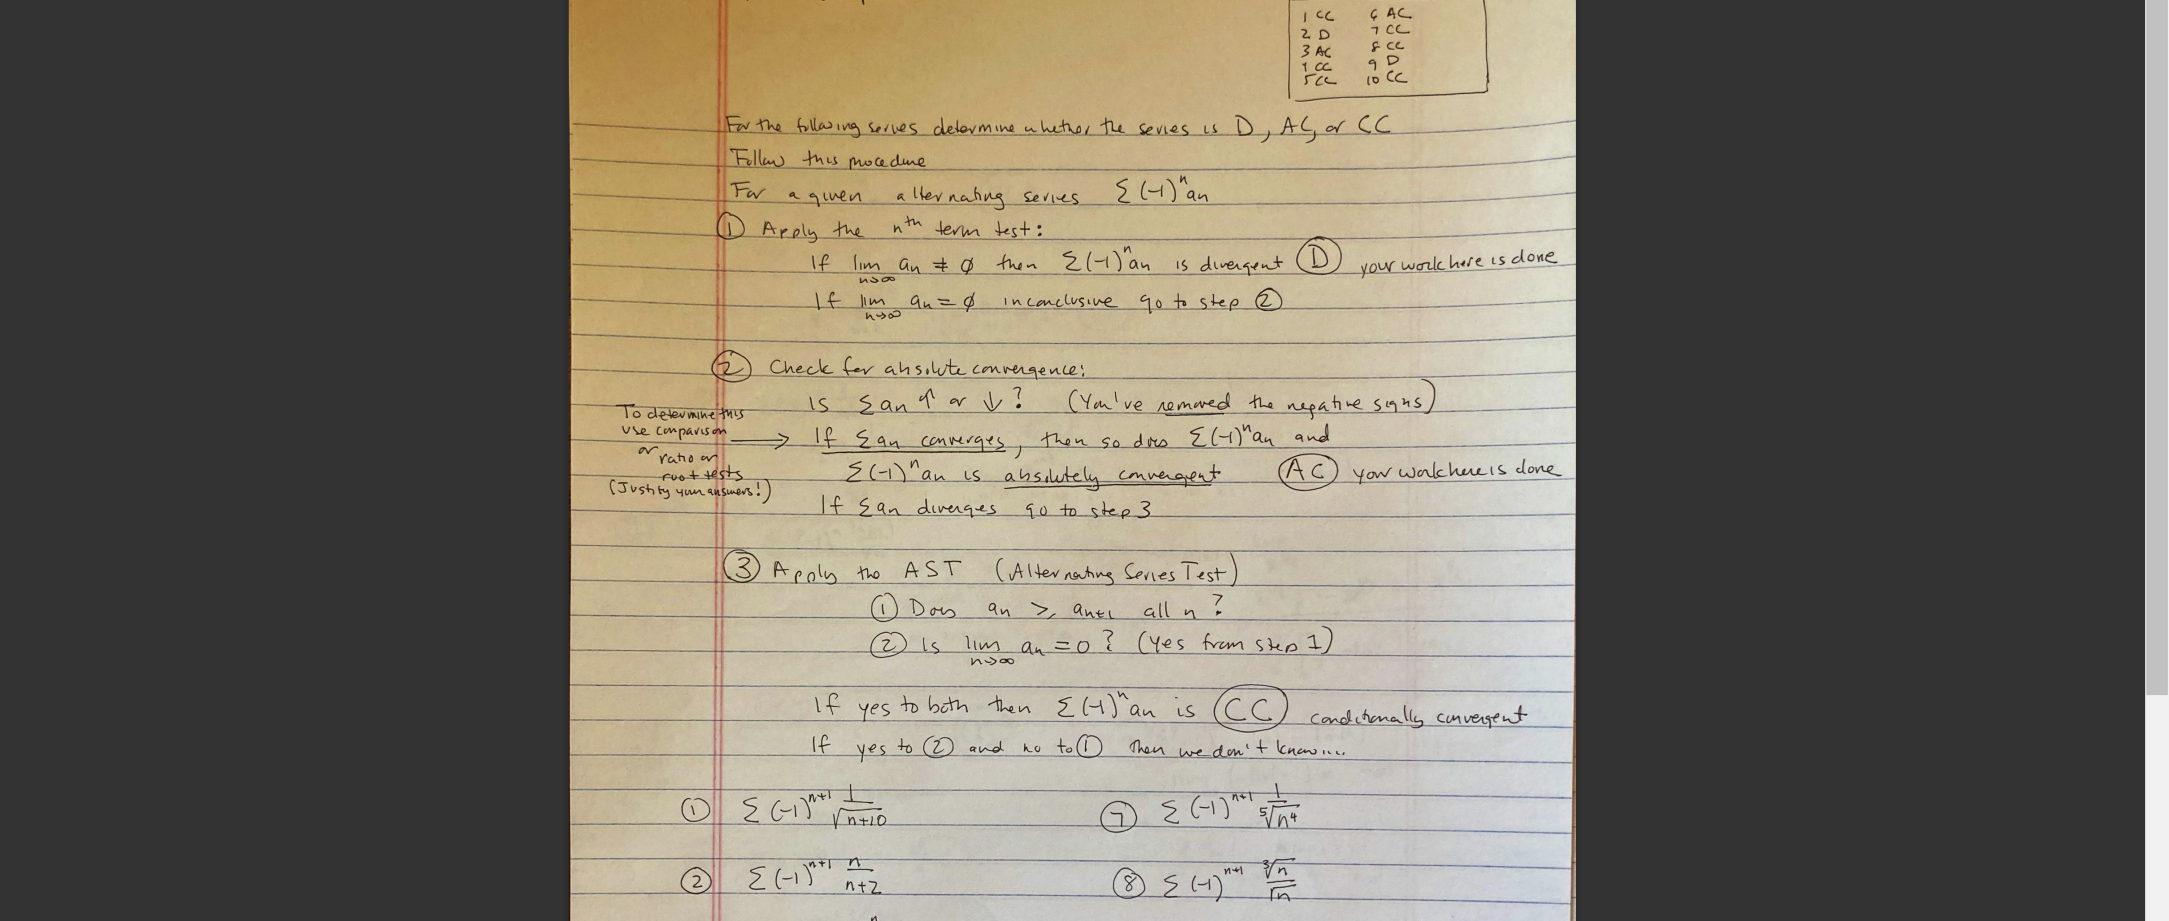 1 CC 6 AC
2 D 7 CC
3 AC 8 CC
4 CC 9 D
5 CC 10 CC
For the following series determine whether the series is D, AC, or CC
Follow this procedure
For a given alternating series Σ(-1)^n an
① Apply the nth term test:
If lim n→∞ an ≠ ∅ then Σ(-1)^n an is divergent Ⓓ your work here is done
If lim n→∞ an = ∅ inconclusive go to step ②
② Check for absolute convergence:
Is Σan ↑ or ↓? (You've removed the negative signs)
To determine this
use comparison
or ratio or
root tests
(Justify your answers!)
→ If Σan converges, then so does Σ(-1)^n an and
Σ(-1)^n an is absolutely convergent (AC) your work here is done
If Σan diverges go to step 3
③ Apply the AST (Alternating Series Test)
① Does an ≥ an+1 all n?
② Is lim n→∞ an = 0? (Yes from step 1)
If yes to both then Σ(-1)^n an is (CC) conditionally convergent
If yes to ② and no to ① then we don't know....
① Σ(-1)^n+1 1/√(n+10) ⑦ Σ(-1)^n+1 1/⁵√(n^4)
② Σ(-1)^n+1 n/(n+2) ⑧ Σ(-1)^n+1 ³√n/√n